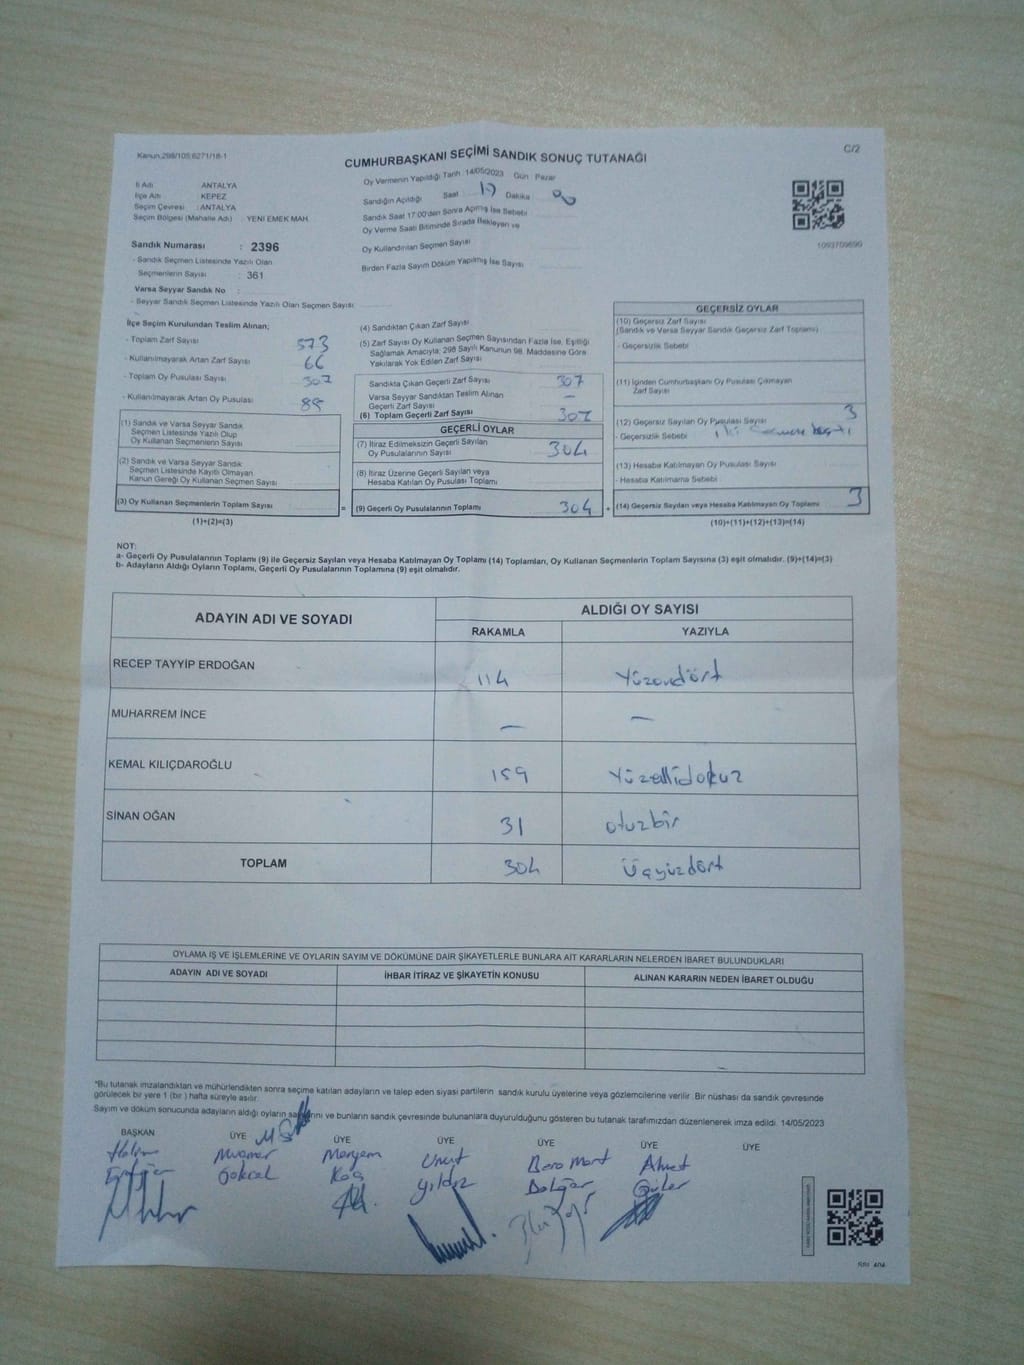 Kanun.298/105;6271/18-1
C/2
CUMHURBAŞKANI SEÇİMİ SANDIK SONUÇ TUTANAĞI
İl Adı : ANTALYA
İlçe Adı : KEPEZ
Seçim Çevresi : ANTALYA
Seçim Bölgesi (Mahalle Adı) : YENİ EMEK MAH.
Oy Vermenin Yapıldığı Tarih 14/05/2023 Gün Pazar
Sandığın Açıldığı Saat 17 Dakika
Sandık Saat 17:00'den Sonra Açılmış İse Sebebi
Oy Verme Saati Bitiminde Sırada Bekleyen ve
Oy Kullandırılan Seçmen Sayısı
Birden Fazla Sayım Döküm Yapılmış İse Sayısı
1093709690
Sandık Numarası : 2396
- Sandık Seçmen Listesinde Yazılı Olan
Seçmenlerin Sayısı : 361
Varsa Seyyar Sandık No :
- Seyyar Sandık Seçmen Listesinde Yazılı Olan Seçmen Sayısı
İlçe Seçim Kurulundan Teslim Alınan;
- Toplam Zarf Sayısı 573
- Kullanılmayarak Artan Zarf Sayısı 66
- Toplam Oy Pusulası Sayısı
- Kullanılmayarak Artan Oy Pusulası
(1) Sandık ve Varsa Seyyar Sandık
Seçmen Listesinde Yazılı Olup
Oy Kullanan Seçmenlerin Sayısı
(2) Sandık ve Varsa Seyyar Sandık
Seçmen Listesinde Kayıtlı Olmayan
Kanun Gereği Oy Kullanan Seçmen Sayısı
(3) Oy Kullanan Seçmenlerin Toplam Sayısı
(1)+(2)=(3)
(4) Sandıktan Çıkan Zarf Sayısı
(5) Zarf Sayısı Oy Kullanan Seçmen Sayısından Fazla İse, Eşitliği
Sağlamak Amacıyla; 298 Sayılı Kanunun 98. Maddesine Göre
Yakılarak Yok Edilen Zarf Sayısı
Sandıkta Çıkan Geçerli Zarf Sayısı 307
Varsa Seyyar Sandıktan Teslim Alınan
Geçerli Zarf Sayısı –
(6) Toplam Geçerli Zarf Sayısı 307
GEÇERLİ OYLAR
(7) İtiraz Edilmeksizin Geçerli Sayılan
Oy Pusulalarının Sayısı 304
(8) İtiraz Üzerine Geçerli Sayılan veya
Hesaba Katılan Oy Pusulası Toplamı
= (9) Geçerli Oy Pusulalarının Toplamı 304 +
GEÇERSİZ OYLAR
(10) Geçersiz Zarf Sayısı
(Sandık ve Varsa Seyyar Sandık Geçersiz Zarf Toplamı)
- Geçersizlik Sebebi
(11) İçinden Cumhurbaşkanı Oy Pusulası Çıkmayan
Zarf Sayısı
(12) Geçersiz Sayılan Oy Pusulası Sayısı 3
- Geçersizlik Sebebi
(13) Hesaba Katılmayan Oy Pusulası Sayısı
- Hesaba Katılmama Sebebi
(14) Geçersiz Sayılan veya Hesaba Katılmayan Oy Toplamı 3
(10)+(11)+(12)+(13)=(14)
NOT:
a- Geçerli Oy Pusulalarının Toplamı (9) ile Geçersiz Sayılan veya Hesaba Katılmayan Oy Toplamı (14) Toplamları, Oy Kullanan Seçmenlerin Toplam Sayısına (3) eşit olmalıdır. (9)+(14)=(3)
b- Adayların Aldığı Oyların Toplamı, Geçerli Oy Pusulalarının Toplamına (9) eşit olmalıdır.
ADAYIN ADI VE SOYADI ALDIĞI OY SAYISI
RAKAMLA YAZIYLA
RECEP TAYYİP ERDOĞAN 114 Yüzondört
MUHARREM İNCE – –
KEMAL KILIÇDAROĞLU 159 Yüzellidokuz
SİNAN OĞAN 31 otuzbir
TOPLAM 304 Üçyüzdört
OYLAMA İŞ VE İŞLEMLERİNE VE OYLARIN SAYIM VE DÖKÜMÜNE DAİR ŞİKAYETLERLE BUNLARA AİT KARARLARIN NELERDEN İBARET BULUNDUKLARI
ADAYIN ADI VE SOYADI İHBAR İTİRAZ VE ŞİKAYETİN KONUSU ALINAN KARARIN NEDEN İBARET OLDUĞU
*Bu tutanak imzalandıktan ve mühürlendikten sonra seçime katılan adayların ve talep eden siyasi partilerin sandık kurulu üyelerine veya gözlemcilerine verilir. Bir nüshası da sandık çevresinde
görülecek bir yere 1 (bir) hafta süreyle asılır.
Sayım ve döküm sonucunda adayların aldığı oyların sayılarını ve bunların sandık çevresinde bulunanlara duyurulduğunu gösteren bu tutanak tarafımızdan düzenlenerek imza edildi. 14/05/2023
BAŞKAN ÜYE ÜYE ÜYE ÜYE ÜYE ÜYE
Muamer Meryem Umut Bora Mert Ahmet
Göksel Koç Yıldız Güler